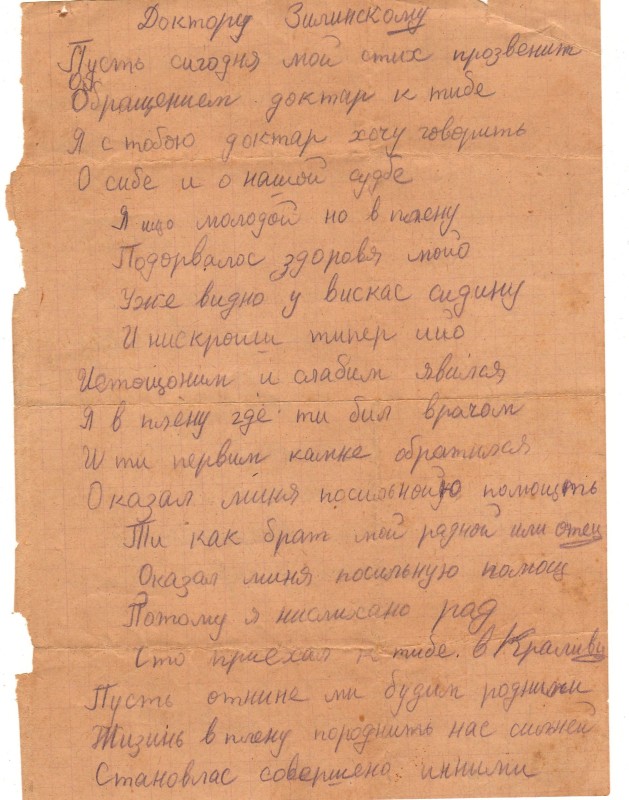 Доктору Зилинскому
Пусть сигодня мой стих прозвенит
Обращением доктар к тибе
Я с тобою доктар хочу говорить
О сибе и о нашой судбе
Я ищо молодой но в плену
Подорвалос здоровя мойо
Уже видно у вискас сидину
И нискроиш типер ийо
Истощоним и слабим явился
Я в плену где ти бил врачом
И ти первим камне обратился
Оказал миня посильною помощть
Ти как брат мой радной или отец
Оказал миня посильную помощ
Потому я нислихано рад
Сто приехал к тибе. в
Пусть отнине ми будим родними
Жизинь в плену породнить нас силней
Становлас совершено инными